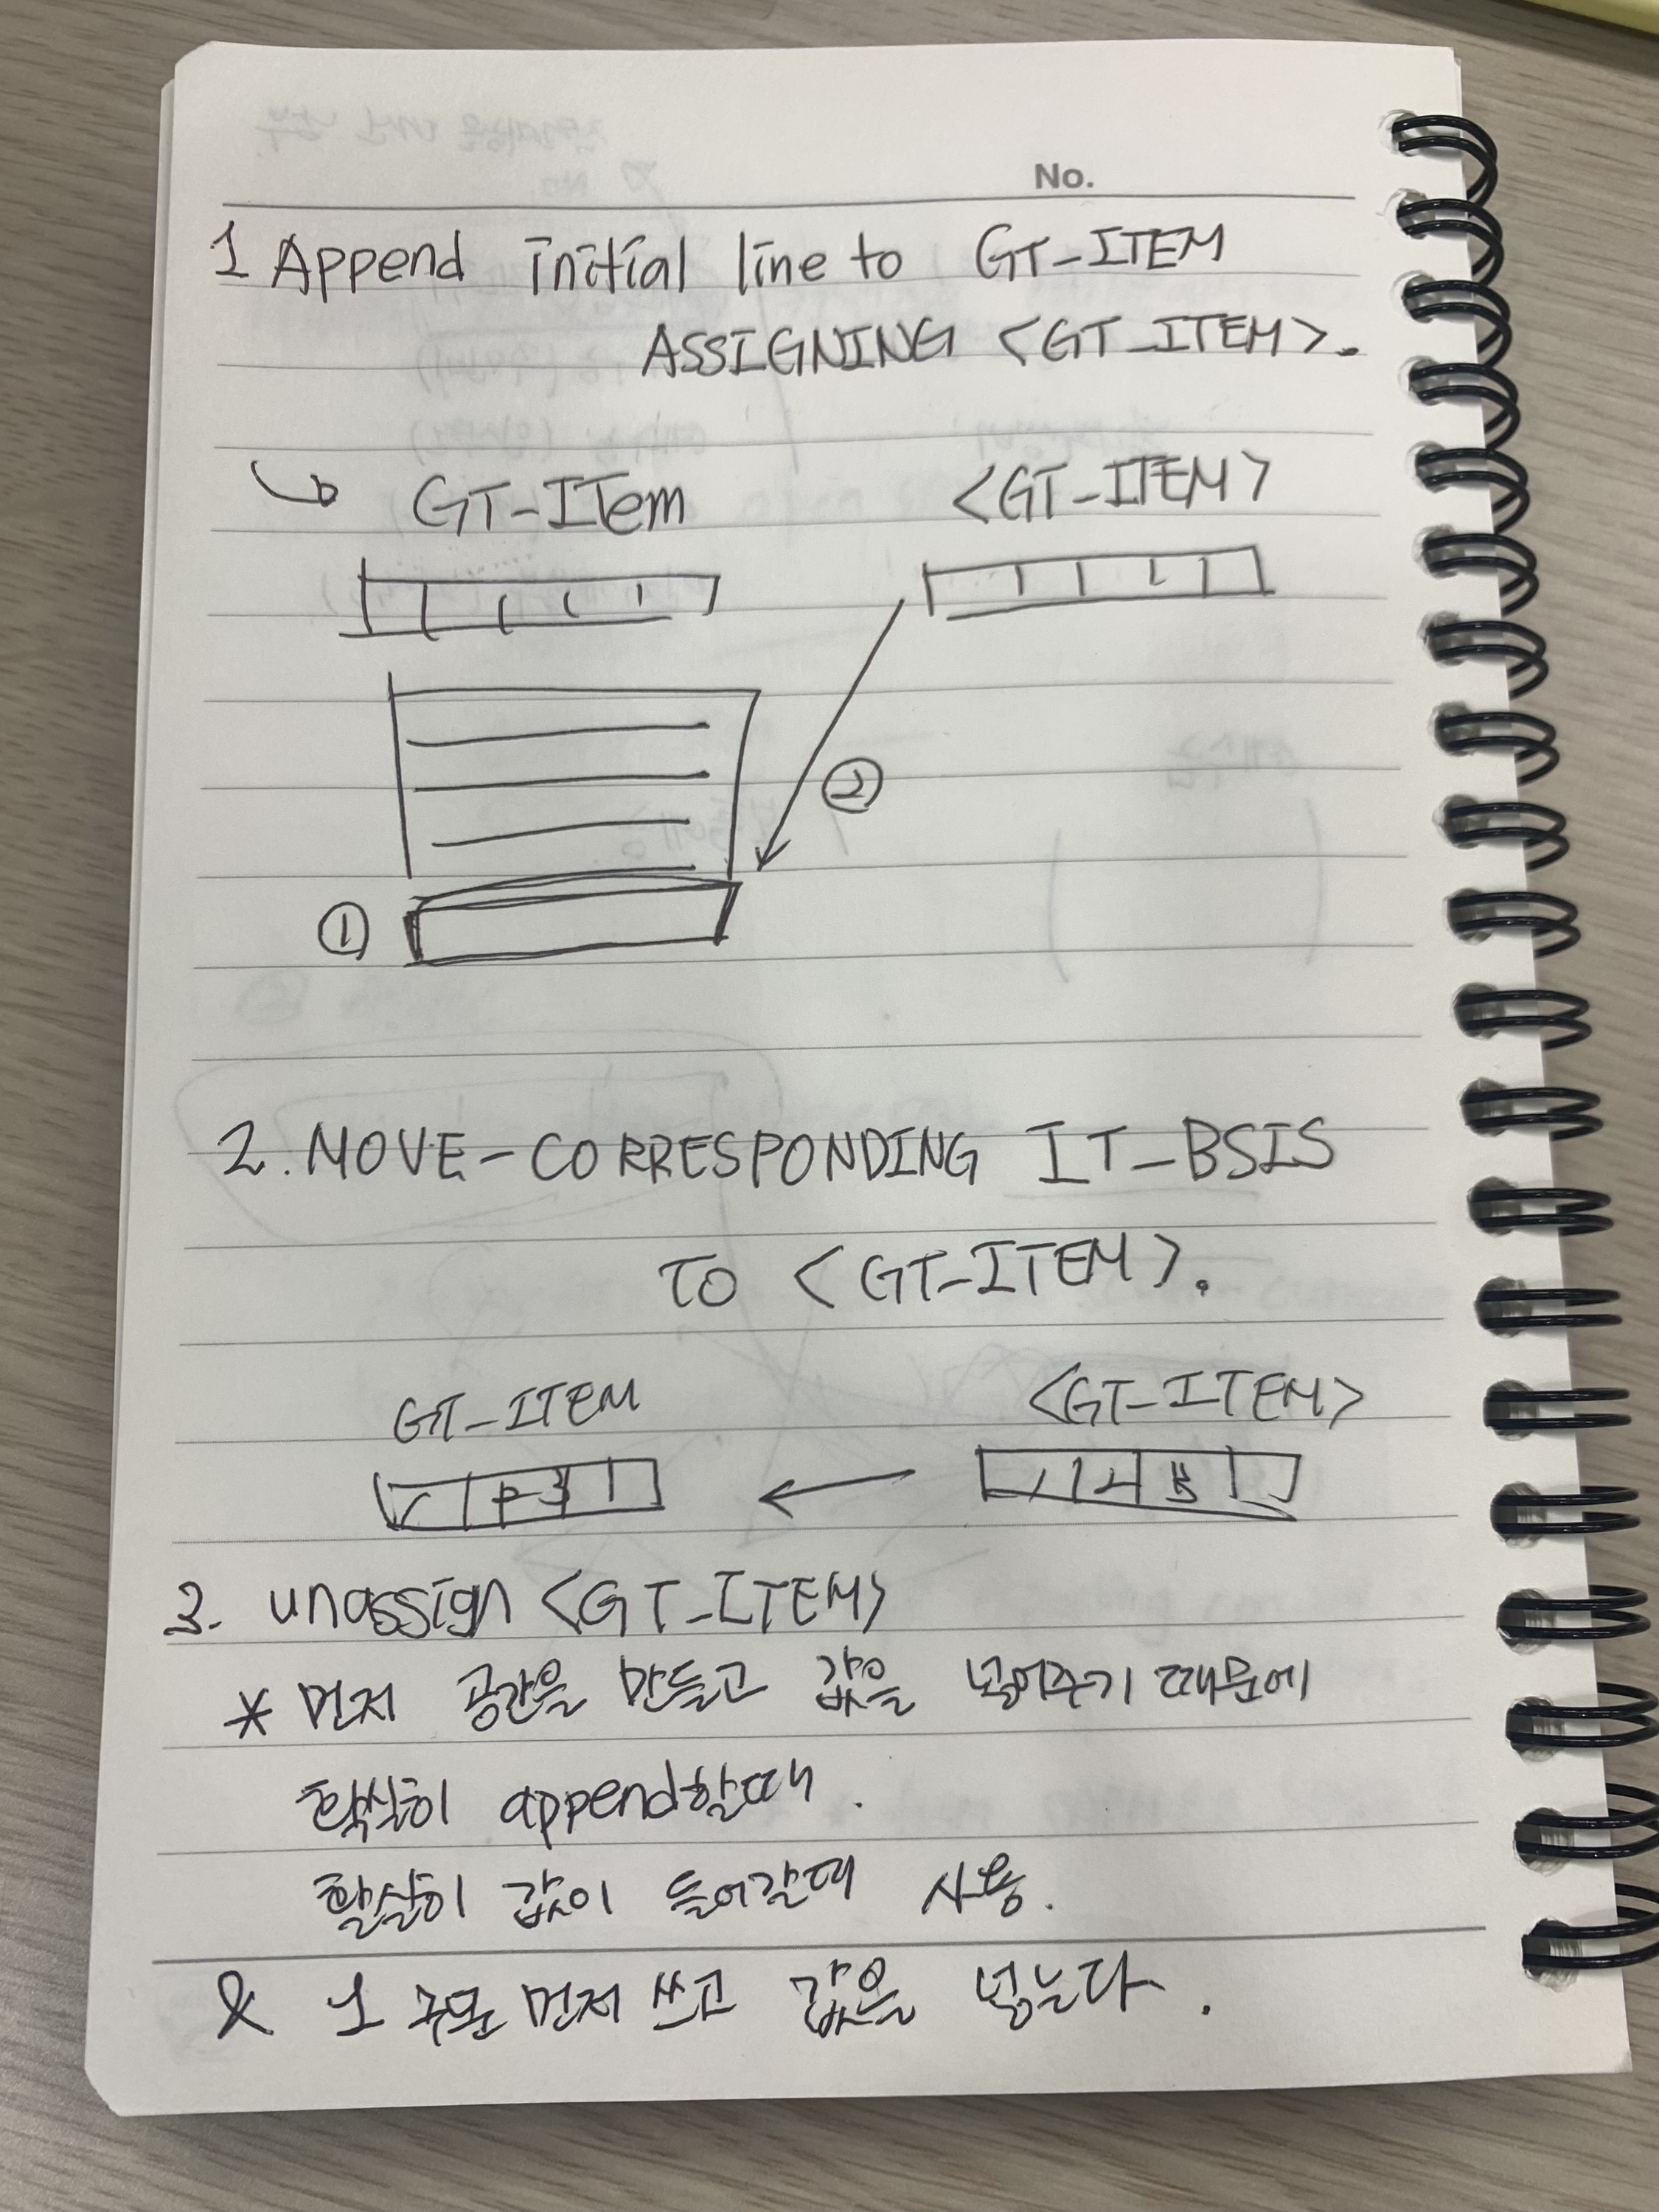 No.
1 Append initial line to GT-ITEM
ASSIGNING <GT-ITEM>.
GT-ITem <GT-ITEM>
②
①
2. MOVE-CORRESPONDING IT-BSIS
TO <GT-ITEM>.
GT-ITEM <GT-ITEM>
3. unassign <GT-ITEM>
* 먼저 공간을 만들고 값을 넣어주기 때문에
확실히 append할때.
확실히 값이 들어갈때 사용.
& 1 구문 먼저 쓰고 값을 넣는다.